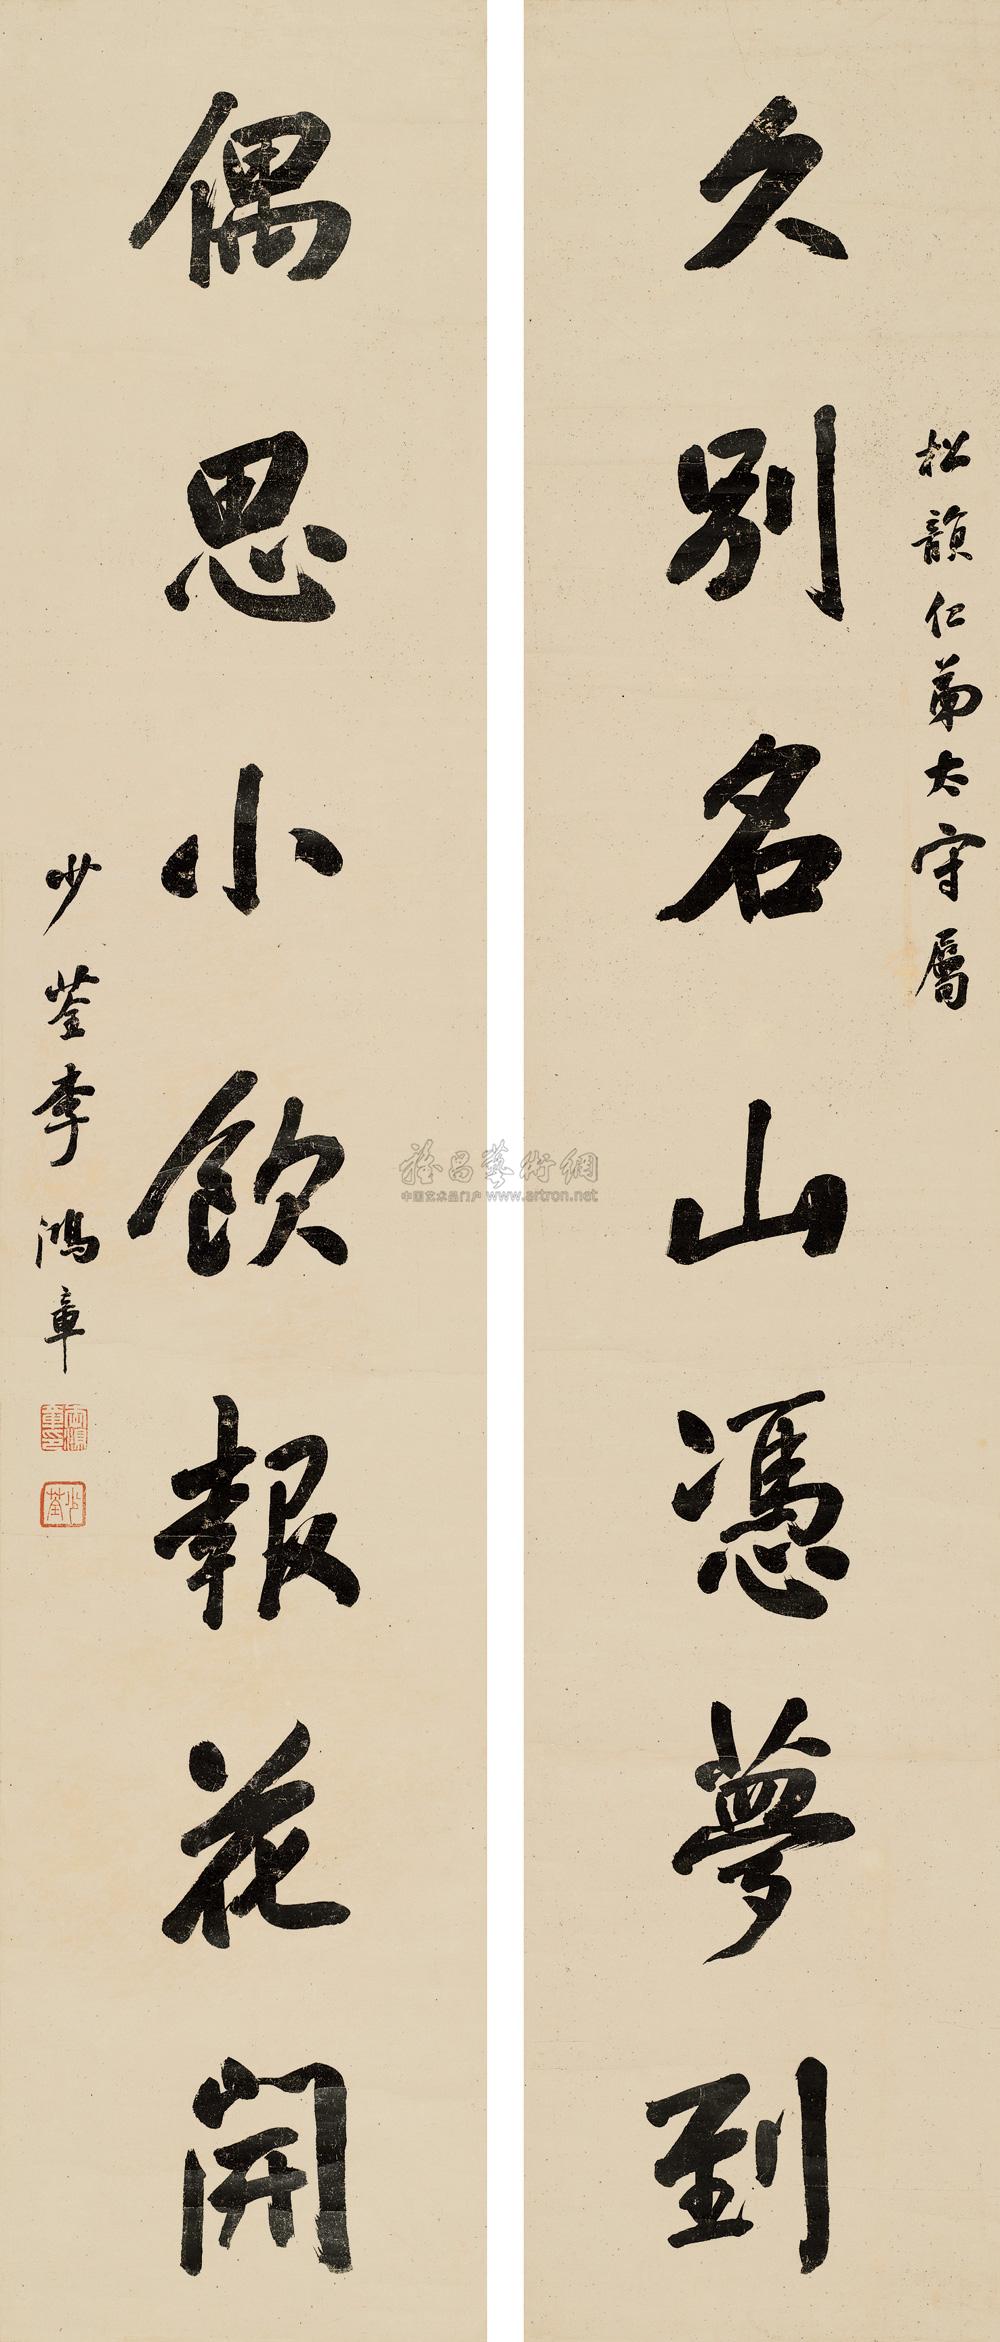 松韻仁弟太守屬
久別名山憑夢到
偶思小飲報花開
少荃李鴻章
少荃
雅昌藝術網
中国艺术品门户 www.artron.net